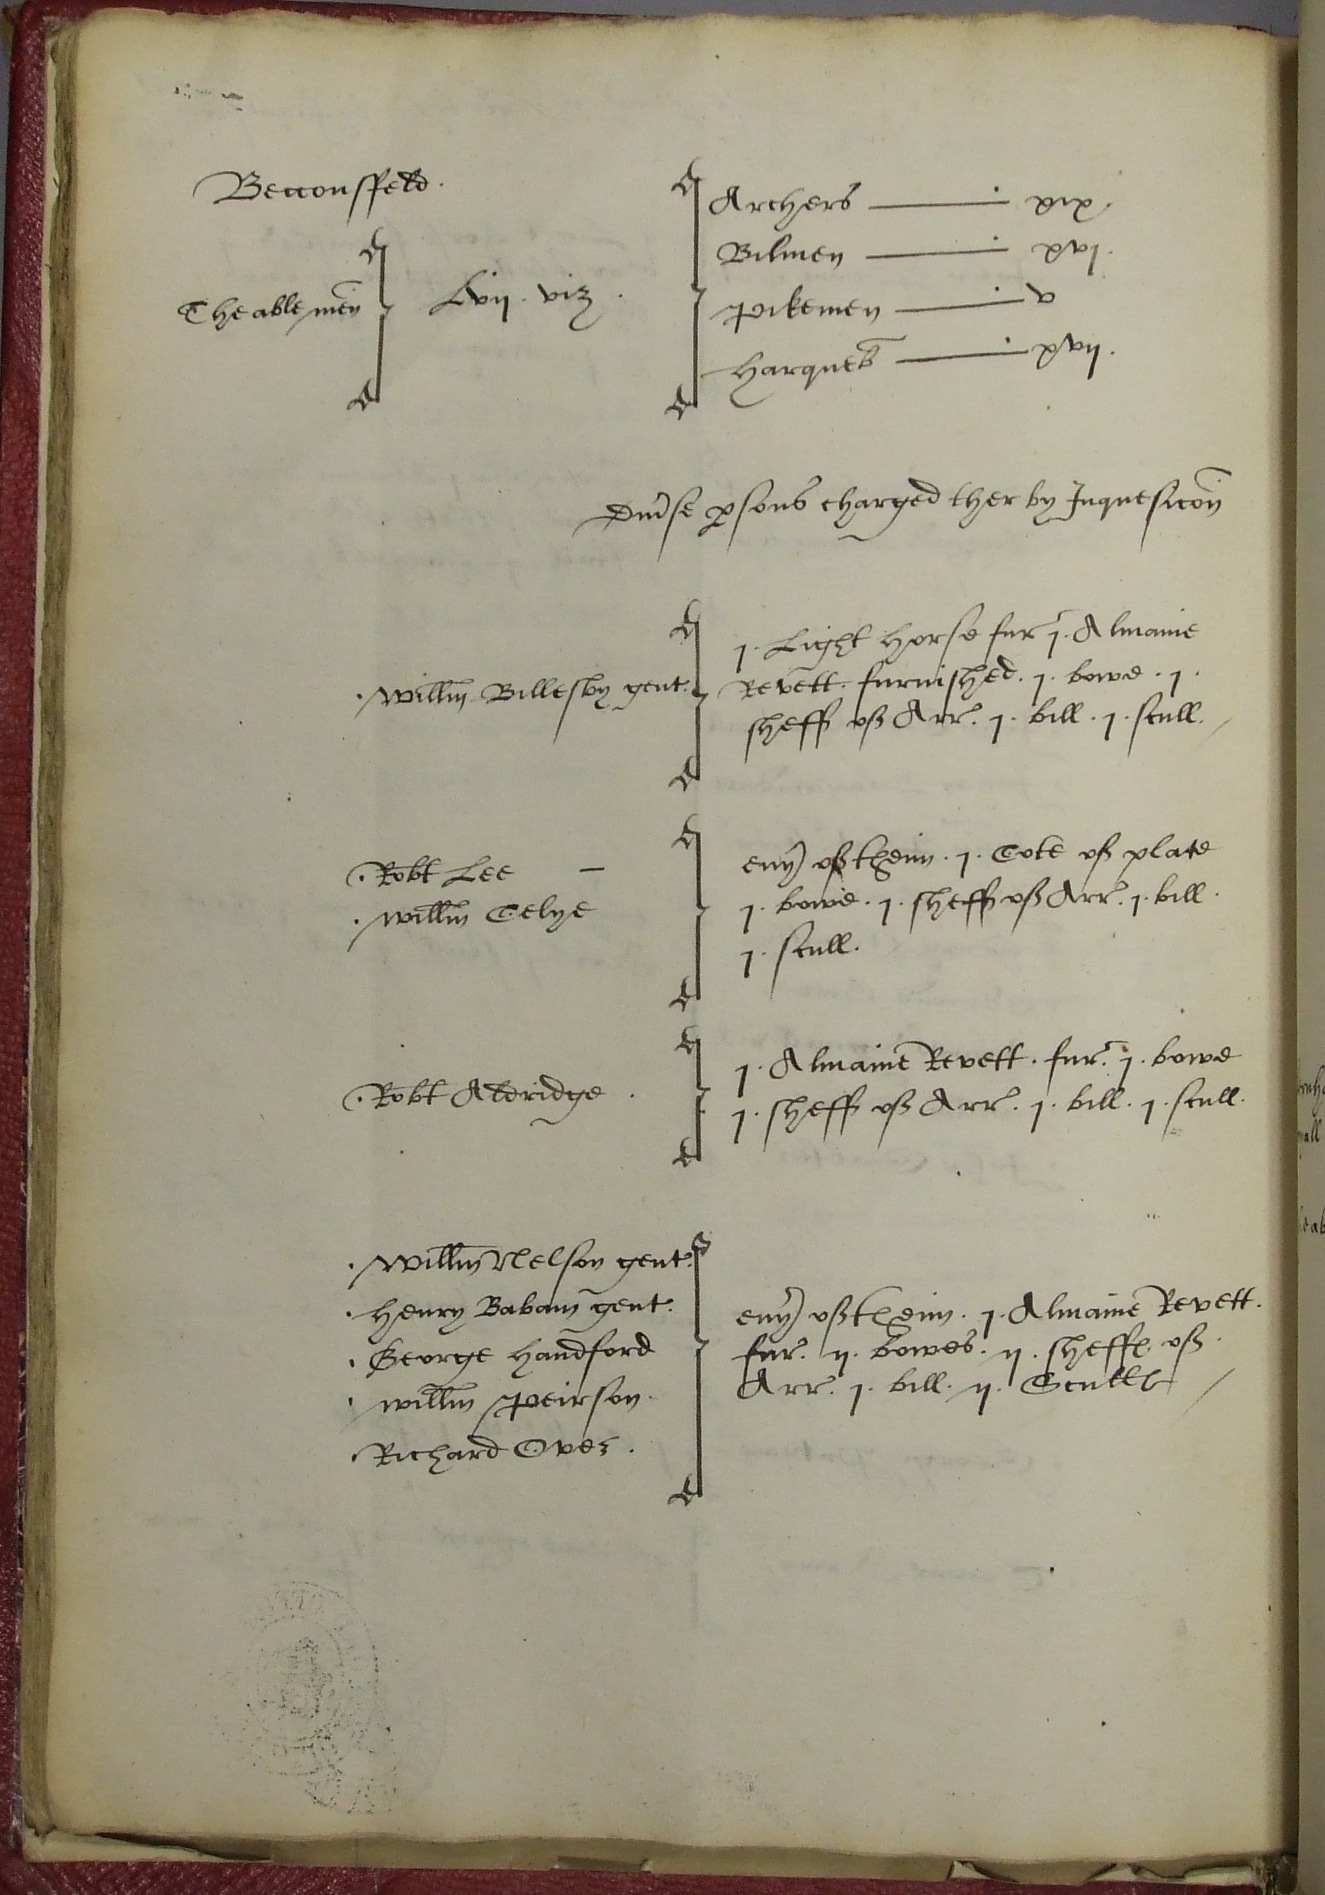 Becconsffeld.
The able men
Lvij. viz.
Archers — xix
Bilmen — xvj.
Pikemen — v
Harqueb — xvij.
Div'se p'sons charged ther by Inquesicon
Willm Billesby gent.
j. Light Horse fur' j. Almaine
Revett. furnished. j. bowe. j.
sheff of Arr. j. bill. j. scull.
Robt Lee
Willm
ev'y of theim. j. Cote of plate
j. bowe. j. sheff of Arr. j. bill.
j. scull.
Robt Aldridge.
j. Almaine Revett. fur. j. bowe
j. sheff of Arr. j. bill. j. scull.
Willm Nelson gent.
Henry Babam gent.
George Handford
Willm Peirson.
Richard
ev'y of theim. j. Almaine Revett.
fur. ij. bowes. ij. sheffes of
Arr. j. bill. ij. Sculles